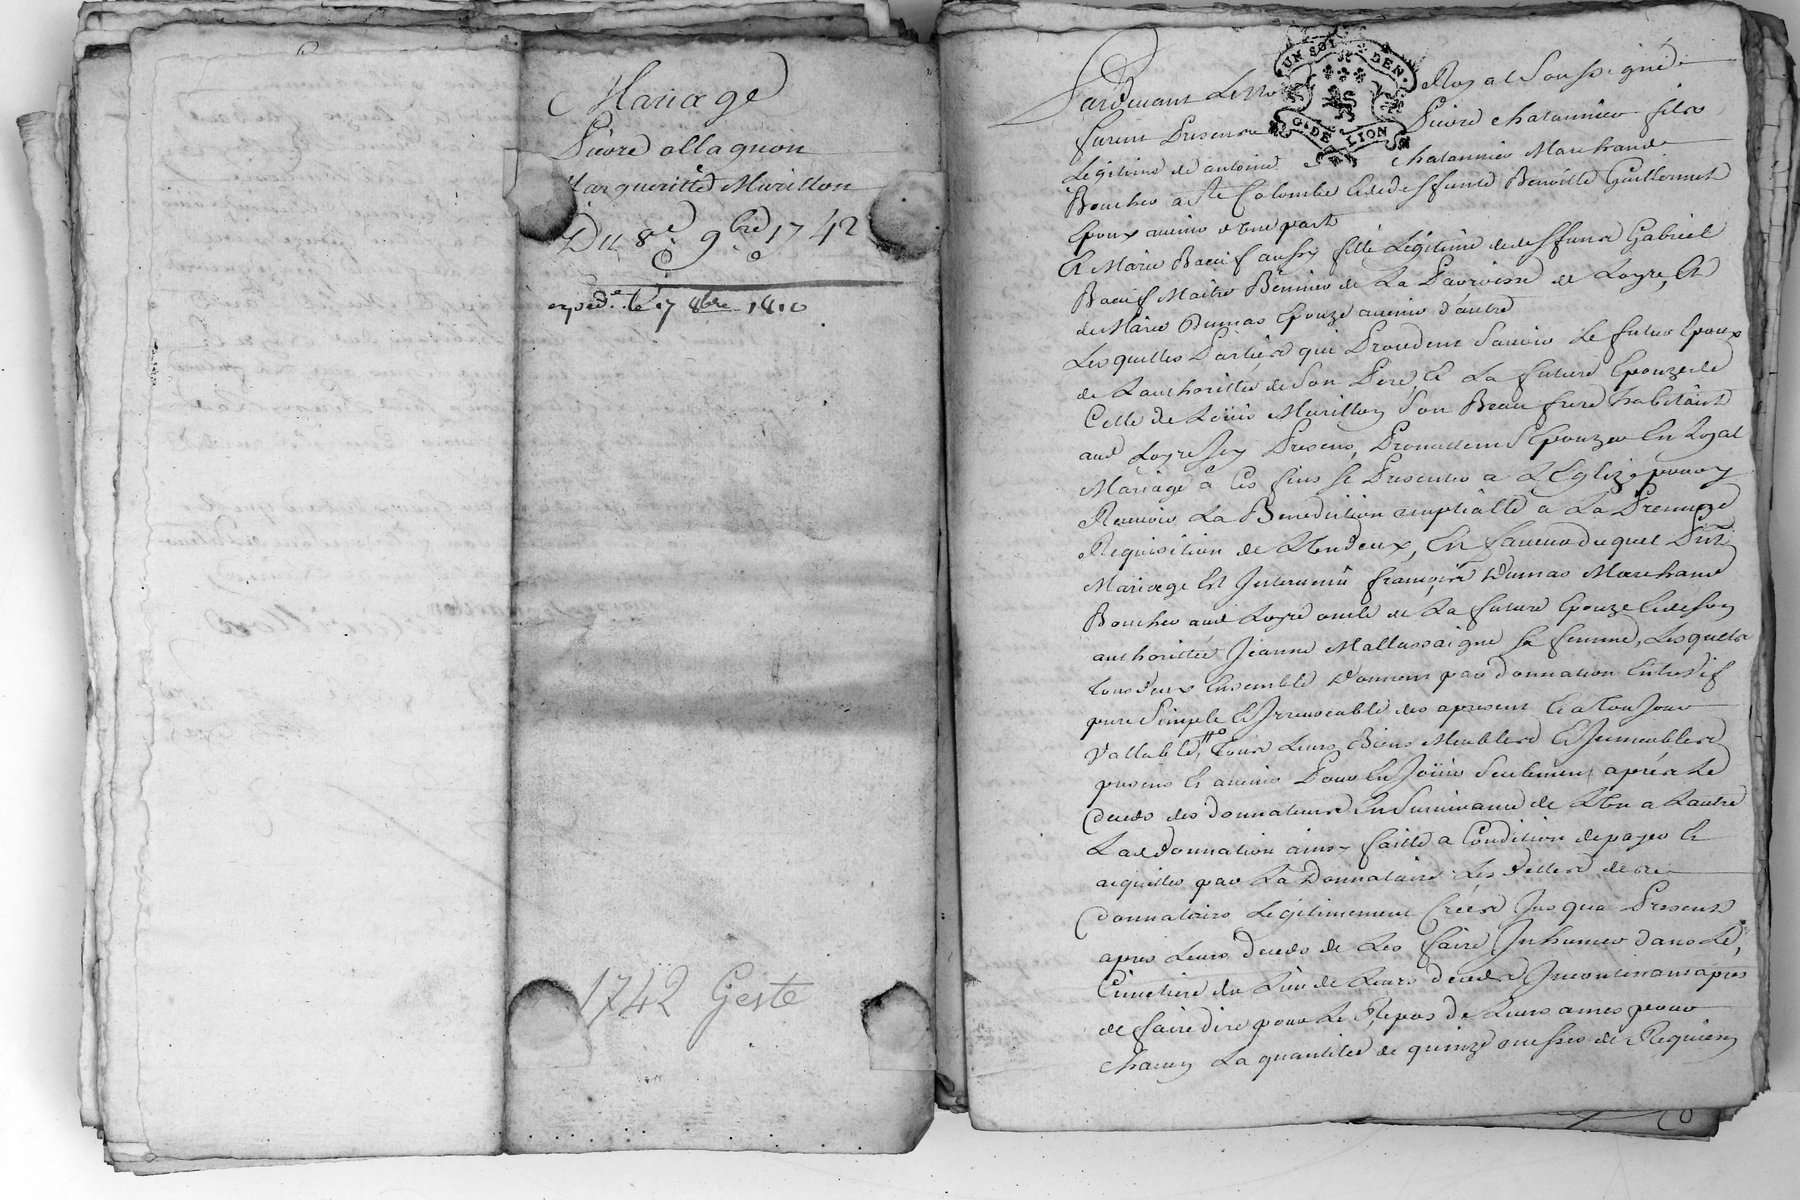 Mariage
Pierre allagnon
Margueritte Murillon
Du 8e 9bre 1742
exped.e le 17 8bre 1810
1742 Geste
UN SOL DEN.
G. DE LION
Pardevant Le No Royal Soussigné
furent Presens Pierre chatannier fils
Légitime de antoine chatannier Marchand
Boucher a Ste Colombe et de deffunte Benoitte Guillermet
Epoux avenir d'une part
Et Marie Bacuf aussy fille Légitime de deffunt Gabriel
Bacuf Maitre de La Parroisse de Loyre, Et
de Marie Dumas Epouze avenir d'autre
Lesquelles Parties qui Procedent Sçavoir Le futur Epoux
de Lauthoritté de Son Pere, Et La future Epouze de
Celle de Loüis Murillon Son Beau frere habitant
aud Loyre Icy Presens, Promettent S'Epouzer En Loyal
Mariage a Ces fins Se Presenter a L'Eglize pour y
Recevoir La Benediction nuptialle a La Premiere
Requisition de L'un d'eux, En faveur duquel Dit
Mariage Est Intervenu françois Dumas Marchand
Boucher aud Loyre oncle de La future Epouze Et de Son
authorittée Jeanne Mallassaigne Sa femme, Lesquels
tous deux Ensemble Donnent par donnation Entrevif
pure Simple Et Irrevocable des apresent Et a toujour
Vallable, tous Leurs Biens Meubles Et Immeubles
presens Et avenir Pour En Joüir Seulement après Le
deceds des donnateurs En Survivance de L'un a L'autre
Lad donnation ainsy faitte a Condition de payer Et
acquitter par La Donnataire Les dettes desd
donnateurs Legitimement Créés Jusqua Present
apres Leurs deceds de Les faire Inhumer dans Le
Cimetiere du Lieu de Leurs deceds Incontinant après
de faire dire pour Le Repos de Leurs ames pour
chacun La quantité de quinze messes de Requiem